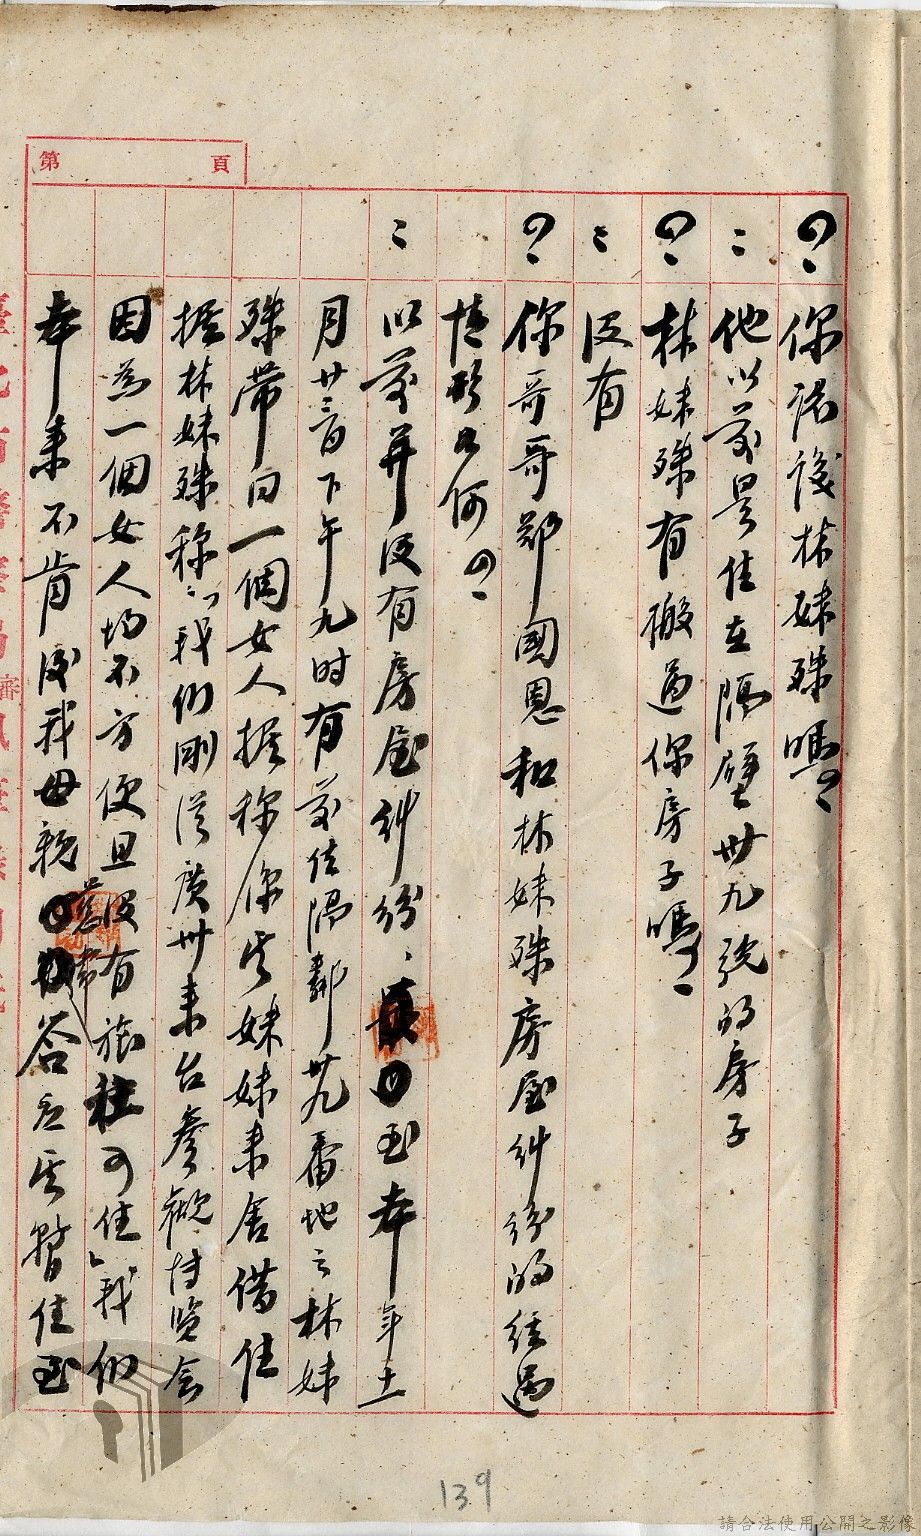 第 頁
？ 你認識林妹殊嗎？
： 他以前是住在隔壁卅九號的房子
？ 林妹殊有搬過你房子嗎？
： 没有
？ 你哥哥鄭國恩和林妹殊房屋糾紛的經過
情形如何？
： 以前并没有房屋糾紛、至本年十一
月廿三日下午九时有前住隔鄰卅九番地之林妹
殊帶回一個女人據称係其妹妹来舍借住
據林妹殊称「我们剛従廣州来台參觀博览会
因為一個女人均不方便且没有旅社可住」我们
本来不肯後我母親答应其暫住至
139
請合法使用公開之影像